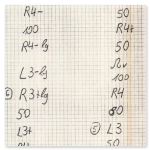 R4-
100
R4-lg
L3-lg
⑥ R3+lg
50
L3+
50
R4+
50
Ωv
100
R4
80
⑤ L3
50